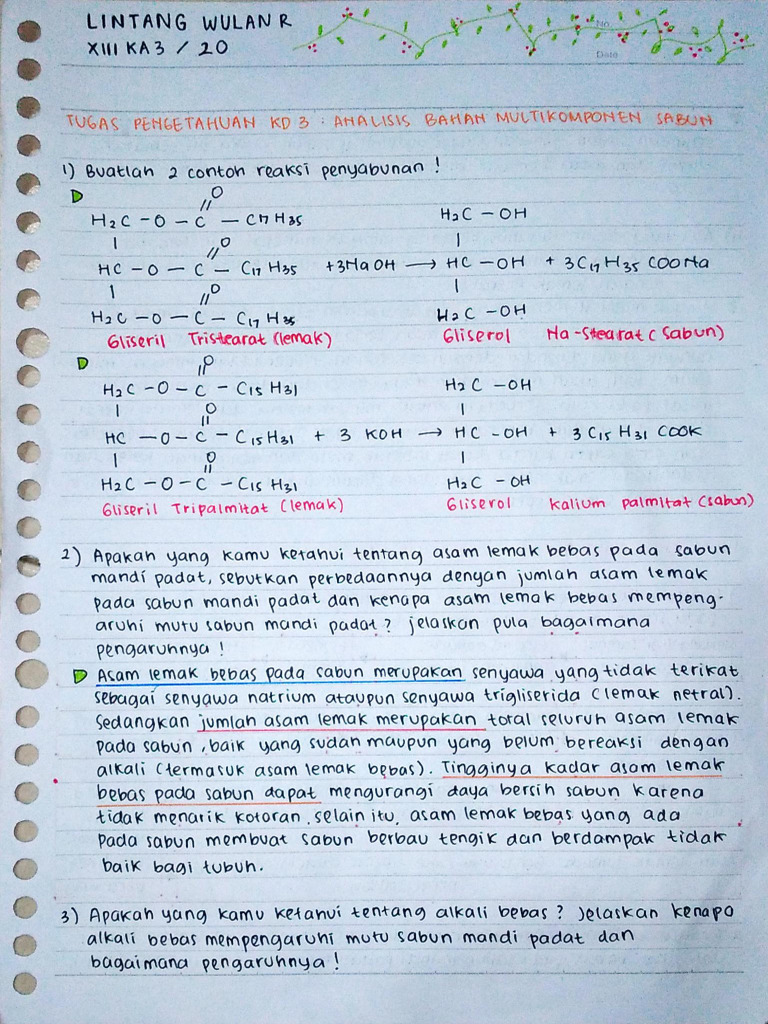 LINTANG WULAN R
XIII KA3 / 20
No.
Date
TUGAS PENGETAHUAN KD 3 : ANALISIS BAHAN MULTIKOMPONEN SABUN
1) Buatlah 2 contoh reaksi penyabunan !
O
H₂C - O - C - C17 H35 H₂C - OH
O
HC - O - C - C17 H35 + 3NaOH → HC - OH + 3C17 H35 COONa
O
H₂C - O - C - C17 H35 H₂C - OH
Gliseril Tristearat (lemak) Gliserol Na-Stearat (sabun)
O
H₂C - O - C - C15 H31 H₂C - OH
O
HC - O - C - C15 H31 + 3 KOH → HC - OH + 3 C15 H31 COOK
O
H₂C - O - C - C15 H31 H₂C - OH
Gliseril Tripalmitat (lemak) Gliserol kalium palmitat (sabun)
2) Apakah yang kamu ketahui tentang asam lemak bebas pada sabun
mandi padat, sebutkan perbedaannya dengan jumlah asam lemak
pada sabun mandi padat dan kenapa asam lemak bebas mempeng-
aruhi mutu sabun mandi padat? jelaskan pula bagaimana
pengaruhnya !
Asam lemak bebas pada sabun merupakan senyawa yang tidak terikat
sebagai senyawa natrium ataupun senyawa trigliserida (lemak netral).
Sedangkan jumlah asam lemak merupakan total seluruh asam lemak
pada sabun, baik yang sudah maupun yang belum bereaksi dengan
alkali (termasuk asam lemak bebas). Tingginya kadar asam lemak
bebas pada sabun dapat mengurangi daya bersih sabun karena
tidak menarik kotoran. selain itu, asam lemak bebas yang ada
pada sabun membuat sabun berbau tengik dan berdampak tidak
baik bagi tubuh.
3) Apakah yang kamu ketahui tentang alkali bebas? Jelaskan kenapa
alkali bebas mempengaruhi mutu sabun mandi padat dan
bagaimana pengaruhnya !